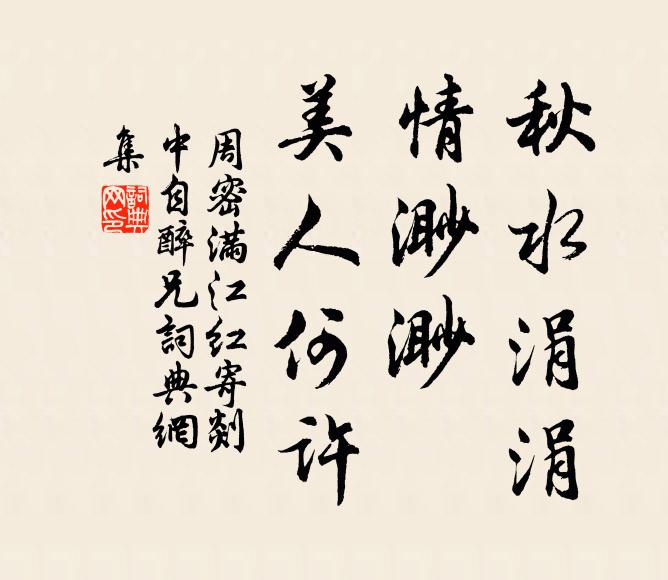 秋水涓涓
情渺渺
美人何许
周密满江红寄剡
中自醉兄詞典網
集
詞典网印